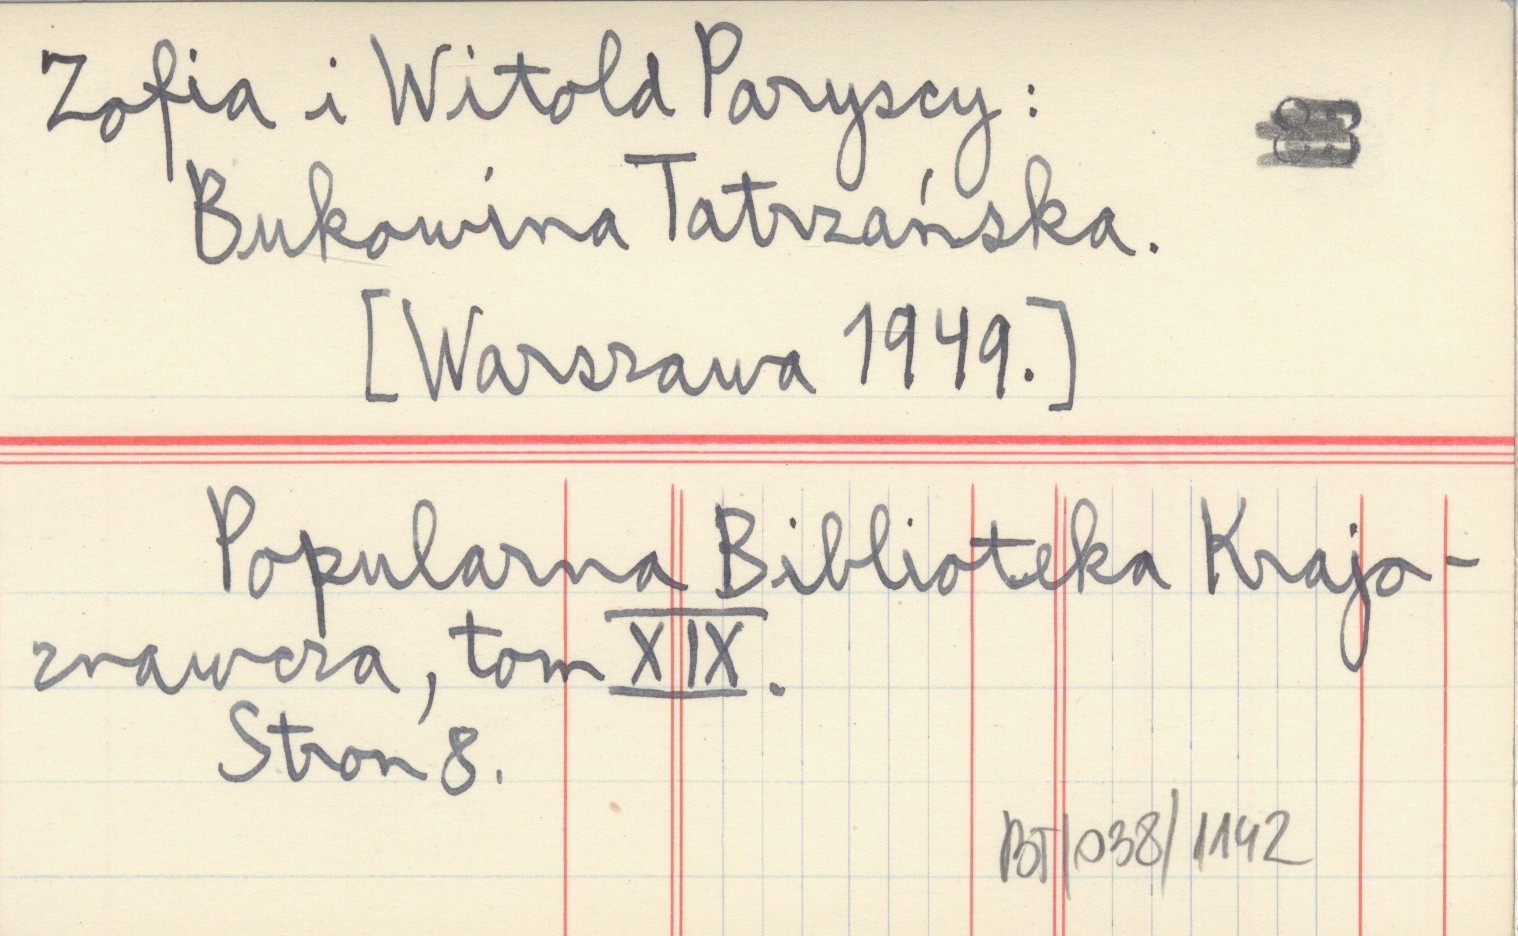 Zofia i Witold Paryscy:
Bukowina Tatrzańska.
[Warszawa 1949.]
Popularna Biblioteka Krajo-
znawcza, tom XIX.
Stron 8.
BT/038/1142